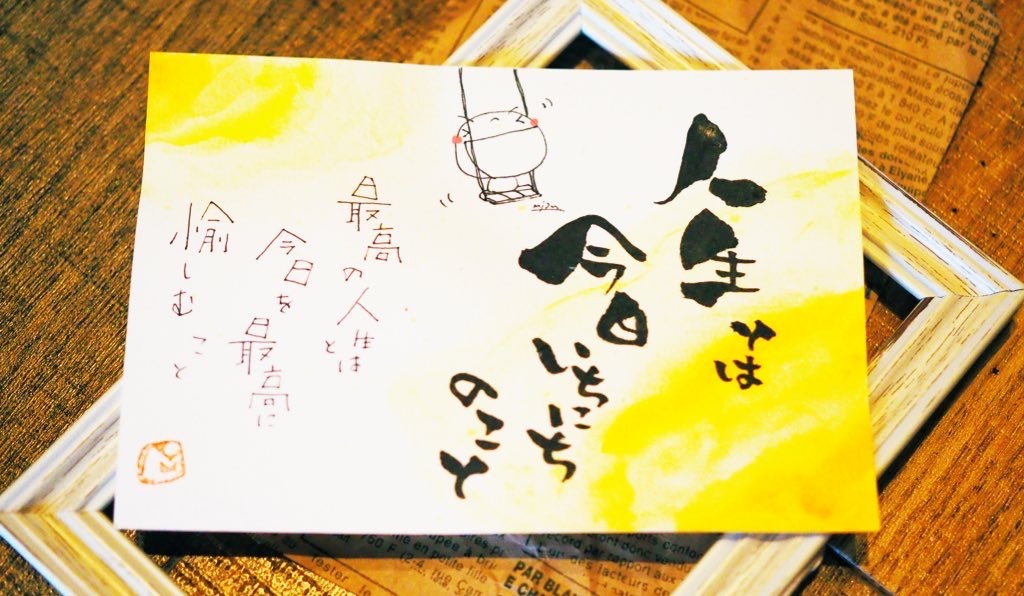 人生とは
今日いちにち
のこと
mizu
最高の人生とは
今日を
最高に
愉しむこと